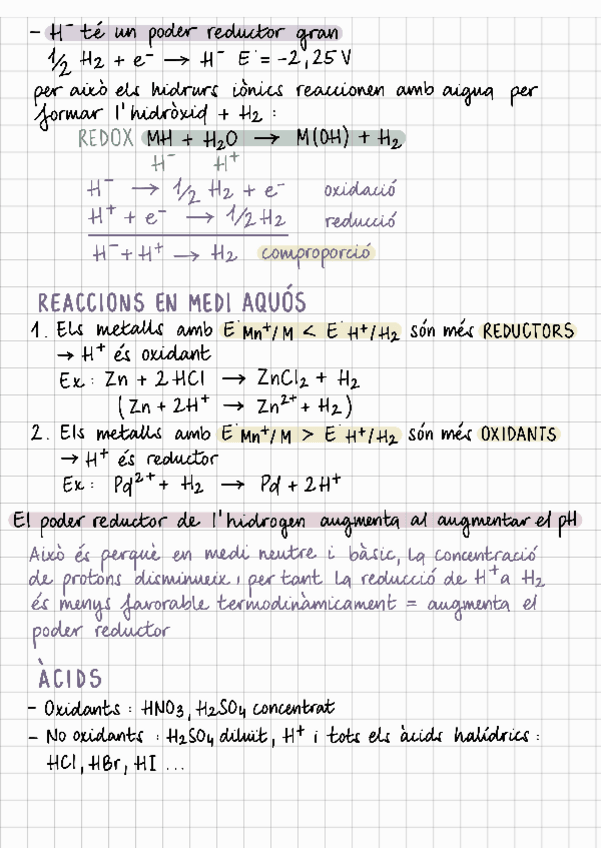 - H⁻ té un poder reductor gran
1/2 H₂ + e⁻ → H⁻ E˙= -2,25 V
per això els hidrurs iònics reaccionen amb aigua per
formar l'hidròxid + H₂ :
REDOX MH + H₂O → M(OH) + H₂
H⁻ H⁺
H⁻ → 1/2 H₂ + e⁻ oxidació
H⁺ + e⁻ → 1/2 H₂ reducció
H⁻ + H⁺ → H₂ comproporció
REACCIONS EN MEDI AQUÓS
1. Els metalls amb E˙Mn⁺/M < E˙H⁺/H₂ són més REDUCTORS
→ H⁺ és oxidant
Ex: Zn + 2HCl → ZnCl₂ + H₂
(Zn + 2H⁺ → Zn²⁺ + H₂)
2. Els metalls amb E˙Mn⁺/M > E˙H⁺/H₂ són més OXIDANTS
→ H⁺ és reductor
Ex: Pd²⁺ + H₂ → Pd + 2H⁺
El poder reductor de l'hidrogen augmenta al augmentar el pH
Això és perquè en medi neutre i bàsic, la concentració
de protons disminueix i per tant la reducció de H⁺ a H₂
és menys favorable termodinàmicament = augmenta el
poder reductor
ÀCIDS
- Oxidants : HNO₃, H₂SO₄ concentrat
- No oxidants : H₂SO₄ diluït, H⁺ i tots els àcids halídrics :
HCl, HBr, HI ...